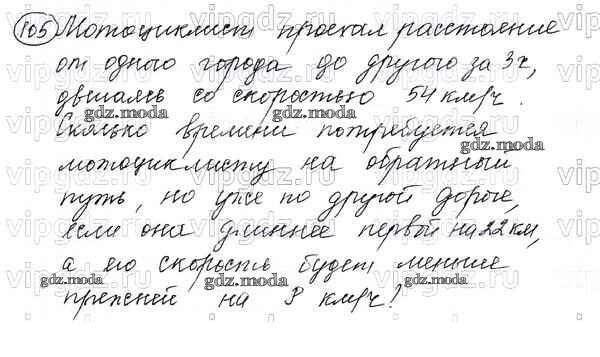 105 Мотоциклист проехал расстояние
от одного города до другого за 3ч,
двигаясь со скоростью 54 км/ч.
Сколько времени потребуется
мотоциклисту на обратный
путь, но уже по другой дороге,
если она длиннее первой на 22 км,
а его скорость будет меньше
прежней на км/ч?
gdz.moda
vipgdz.ru